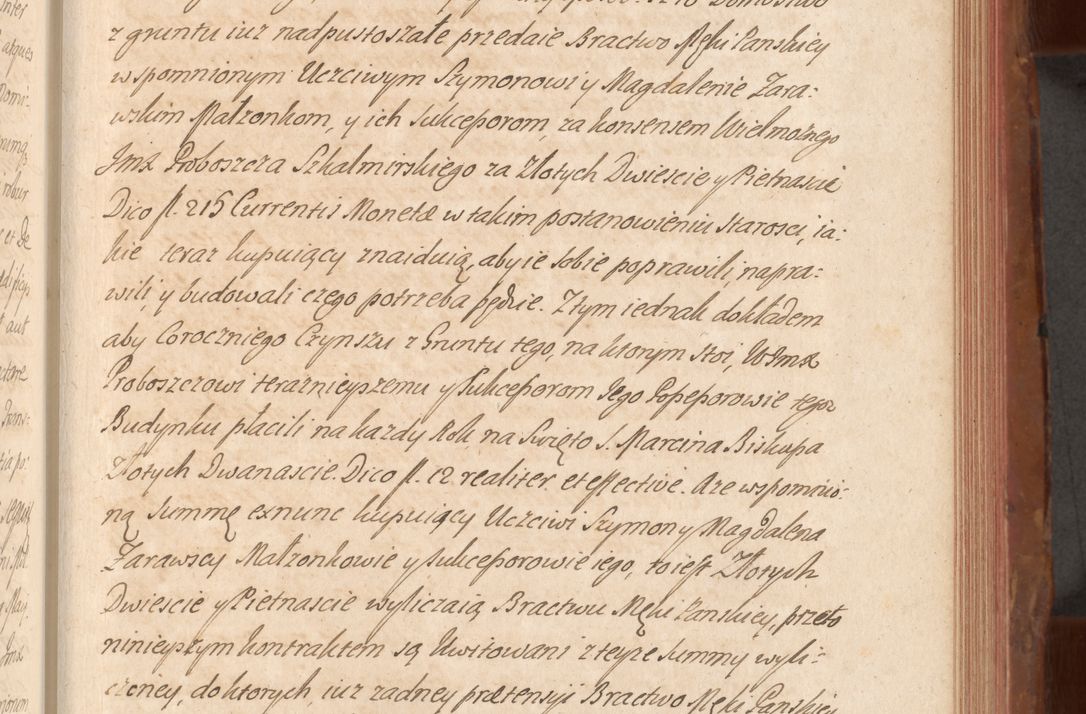 z gruntu iuz nadpustoszałe przedaie Bractwo Męki Panskiey
wspomnionym Uczciwym Szymonowi y Magdalenie Zara:
wskim Małzonkom, y ich Sukceßorom, za konsensem Wielmoznego
Jmx Proboszcza Szkalmirskiego za Złotych Dwiescie y Pietnascie
Dico fl. 215 Currentis Monetæ w takim postanowieniu starosci, ia:
kie teraz kupuiący znaiduią, aby ie sobie poprawili, napra:
wili, y budowali czego potrzeba będzie. Z tym iednak dokładem
aby Coroczniego Czynszu z Gruntu tego, na ktorym stoi, WJmx
Proboszczowi teraznieyszemu y Sukceßorom Jego Poßeßorowie tegoz
Budynku płacili na kazdy Rok, na Swięto S. Marcina Biskupa
Złotych Dwanascie. Dico fl. 12 realiter et effective. Aze wspomnio:
ną Summę exnunc kupuiący Uczciwi Szymon y Magdalena
Zarawscy Małzonkowie y Sukceßorowie iego, to iest Złotych
Dwiescie y Pietnascie wyliczaią Bractwu Męki Panskiey, przeto
ninieyszym kontraktem są Ukwitowani z teyze Summy wyli:
czoney, do ktorych, iuz zadney prætensyi Bractwo Męki Panskiey